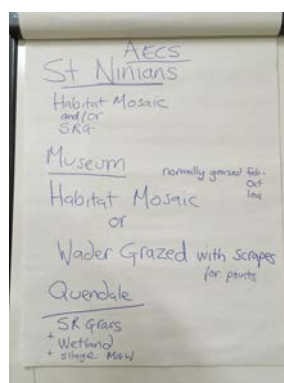 AECS
St Ninians
Habitat Mosaic
and/or
SRG
Museum
normally grazed
Out
Habitat Mosaic
or
Wader Grazed with Scrapes
for
Quendale
SR Grass
+ Wetland
+ silage